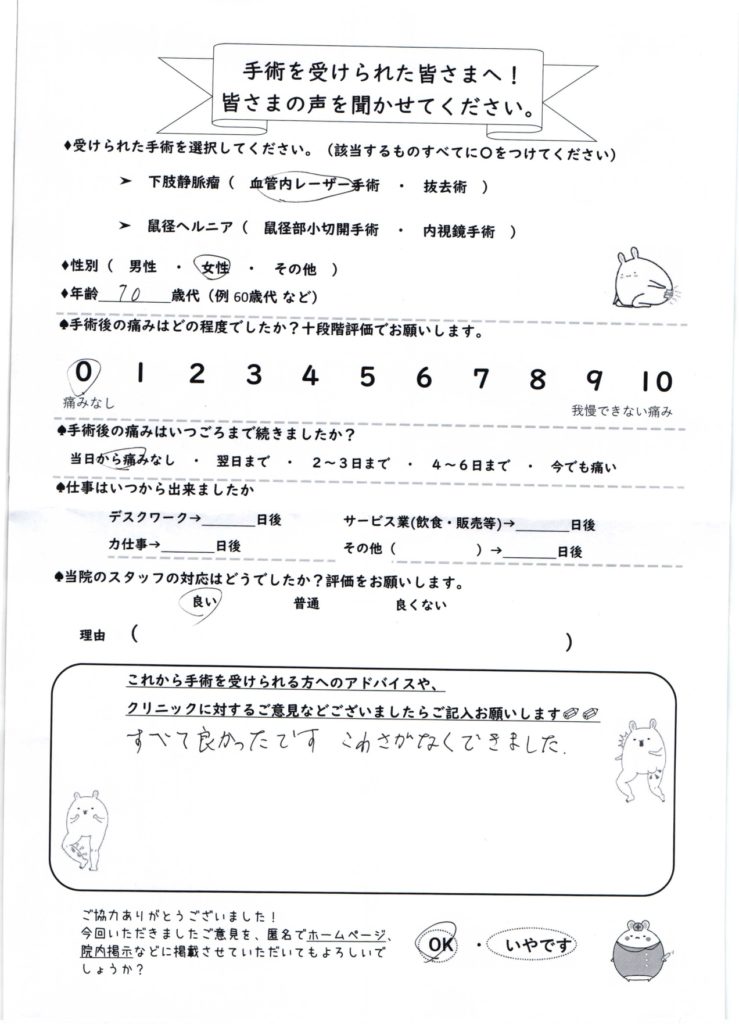 手術を受けられた皆さまへ!
皆さまの声を聞かせてください。
♦受けられた手術を選択してください。(該当するものすべてに〇をつけてください)
➤ 下肢静脈瘤( 血管内レーザー手術 ・ 抜去術 )
➤ 鼠径ヘルニア( 鼠径部小切開手術 ・ 内視鏡手術 )
♦性別( 男性 ・ 女性 ・ その他 )
♦年齢 70 歳代(例 60歳代 など)
♠手術後の痛みはどの程度でしたか?十段階評価でお願いします。
0 1 2 3 4 5 6 7 8 9 10
痛みなし 我慢できない痛み
♠手術後の痛みはいつごろまで続きましたか?
当日から痛みなし ・ 翌日まで ・ 2~3日まで ・ 4~6日まで ・ 今でも痛い
♠仕事はいつから出来ましたか
デスクワーク→______日後 サービス業(飲食・販売等)→______日後
力仕事→______日後 その他( )→______日後
♠当院のスタッフの対応はどうでしたか?評価をお願いします。
良い 普通 良くない
理由 ( )
これから手術を受けられる方へのアドバイスや、
クリニックに対するご意見などございましたらご記入お願いします
すべて良かったです こわさがなくできました.
ご協力ありがとうございました!
今回いただきましたご意見を、匿名でホームページ、
院内掲示などに掲載させていただいてもよろしいで
しょうか?
OK ・ いやです